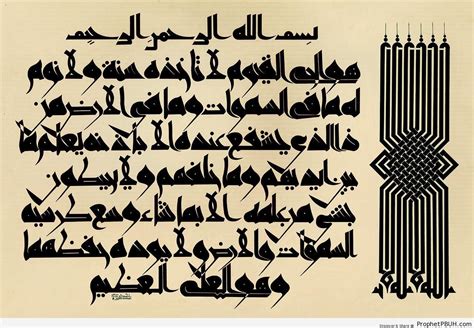 بسم الله الرحمن الرحيم
الله لا إله إلا
هو الحي القيوم لا تأخذه سنة ولا نوم
له ما في السموات وما في الأرض من
ذا الذي يشفع عنده إلا بإذنه يعلم ما
بين أيديهم وما خلفهم ولا يحيطون
بشيء من علمه إلا بما شاء وسع كرسيه
السموات والأرض ولا يؤده حفظهما
وهو العلي العظيم
Discover & Share @
ProphetPBUH.com